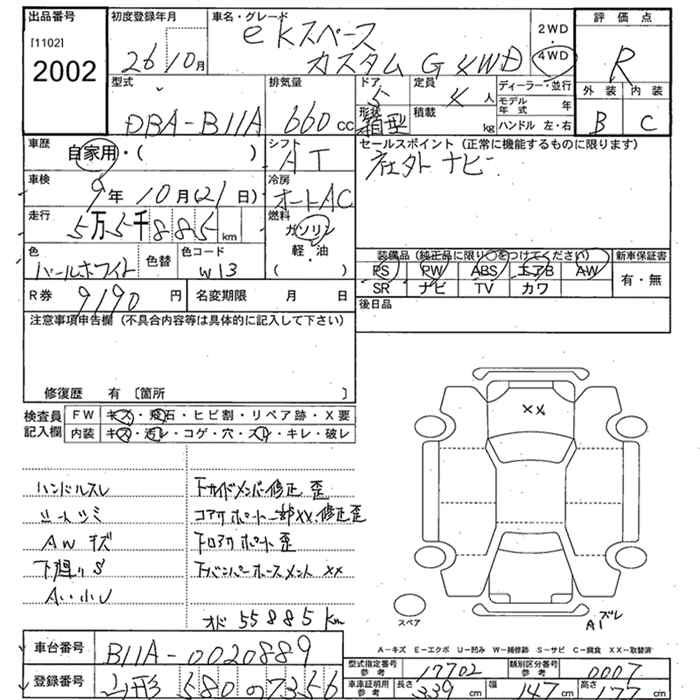 出品番号
[1102]
2002
初度登録年月
26年10月
車名・グレード
eKスペース
カスタム G 4WD
2WD
・
4WD
評価点
R
外装 内装
B C
型式
DBA-B11A
排気量
660cc
ドア
5
形状
箱型
定員
4人
積載
kg
ディーラー・並行
モデル年式 年
ハンドル 左・右
車歴
自家用・( )
シフト
AT
車検
9年10月(21日)
冷房
オートAC
走行
5万5千885km
燃料
ガソリン
軽・油
( )
色
パールホワイト
色替
色コード
W13
R券
9190円
名変期限 月 日
セールスポイント (正常に機能するものに限ります)
社外ナビ
装備品 (純正品に限り○をつけてください)
PS PW ABS エアB AW
SR ナビ TV カワ
新車保証書
有・無
後日品
注意事項申告欄 (不具合内容等は具体的に記入して下さい)
修復歴 有 〔箇所 〕
検査員記入欄
FW キズ・飛石・ヒビ割・リペア跡・X要
内装 キズ・汚レ・コゲ・穴・スレ・キレ・破レ
ハンドルスレ
シートシミ
AWキズ
下廻りS
A・小U
下サイドメンバー修正 歪
コアサポート一部XX、修正歪
下ロアサポート 歪
下バンパーホースメント XX
オド 55885km
XX
スペア
A1ズレ
A-キズ E-エクボ U-凹み W-補修跡 S-サビ C-腐食 XX-取替済
車台番号
B11A-0020889
登録番号
山形 580 の 7356
型式指定番号
参考
17702
類別区分番号
参考
0007
車庫証明用
参考
長さ 339cm
幅 147cm
高さ 177cm